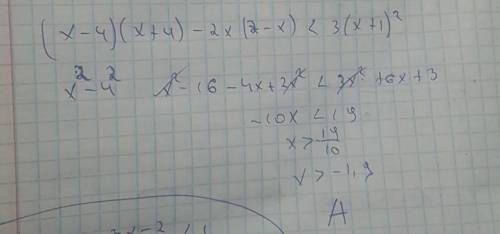 (x-4)(x+4) - 2x(2-x) < 3(x+1)²
x² - 4² x² - 16 - 4x + 2x² < 3x² + 6x + 3
-10x < 19
x > 19/10
x > -1,9
A